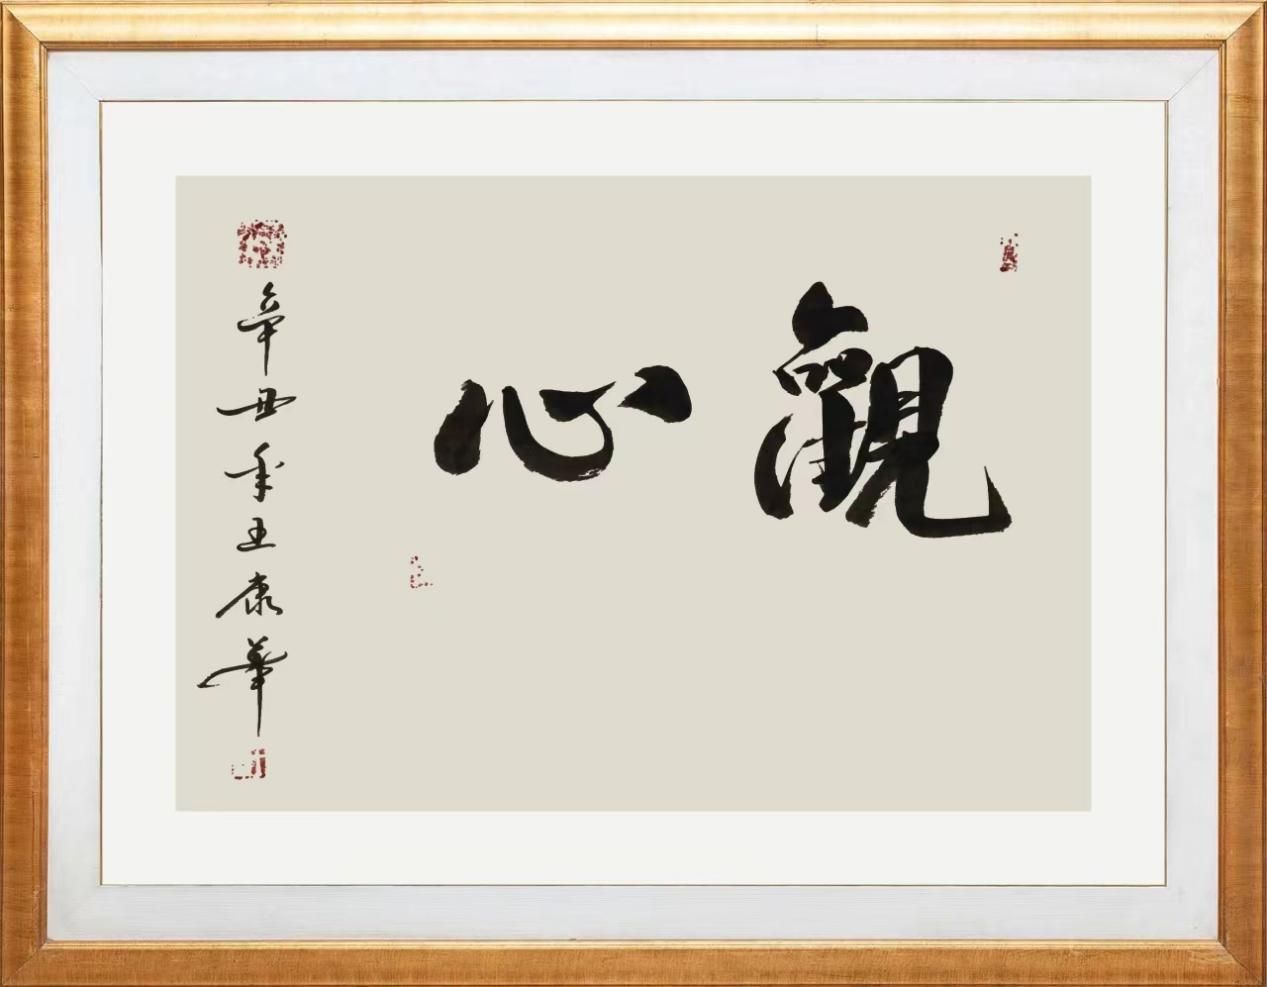 觀心
辛丑年王康華